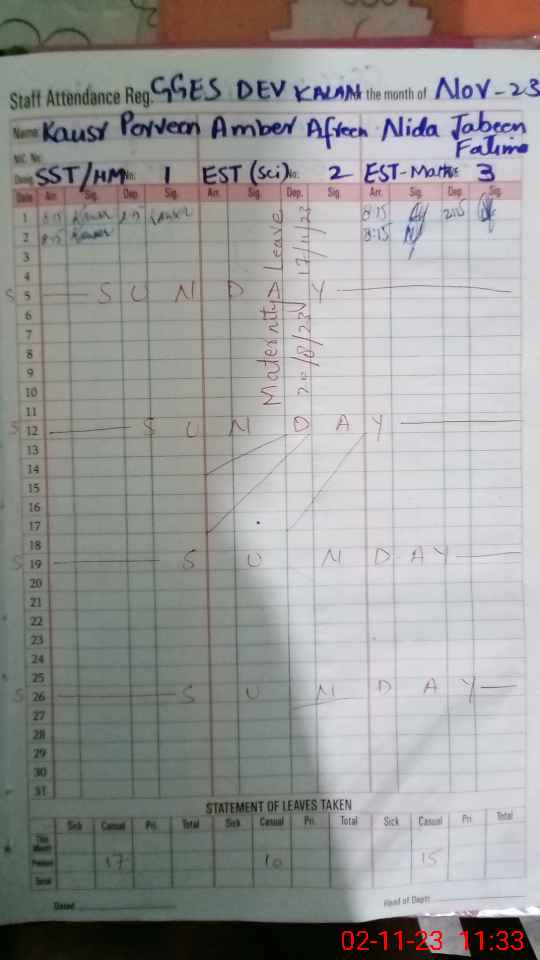 Staff Attendance Reg. GGES DEV KALAN for the month of Nov-23
Name Kausr Parveen Amber Afreen Nida Jabeen
Fatima
NIC. No.
Desig SST/HM No: 1 EST (Sci) No: 2 EST-Maths 3
Date Arr. Sig. Dep. Sig. Arr. Sig. Dep. Sig. Arr. Sig. Dep. Sig.
1 8:15 Kausar 2:15 Kausar 8:15 2:15
2 8:15 Kausar 8:15
3
4
S 5 SUNDAY
6
7
8
9
10
11
S 12 SUNDAY
13
14
15
16
17
18
S 19 SUNDAY
20
21
22
23
24
25
S 26 SUNDAY
27
28
29
30
31
Maternity Leave
20/8/23 17/11/23
STATEMENT OF LEAVES TAKEN
Sick Casual Pri. Total Sick Casual Pri. Total Sick Casual Pri. Total
This Month
Previous 17 10 15
Total
Dated Head of Deptt.
02-11-23 11:33